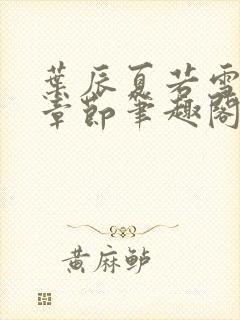 葉辰夏若雪
章節筆趣閣
黄麻鲈